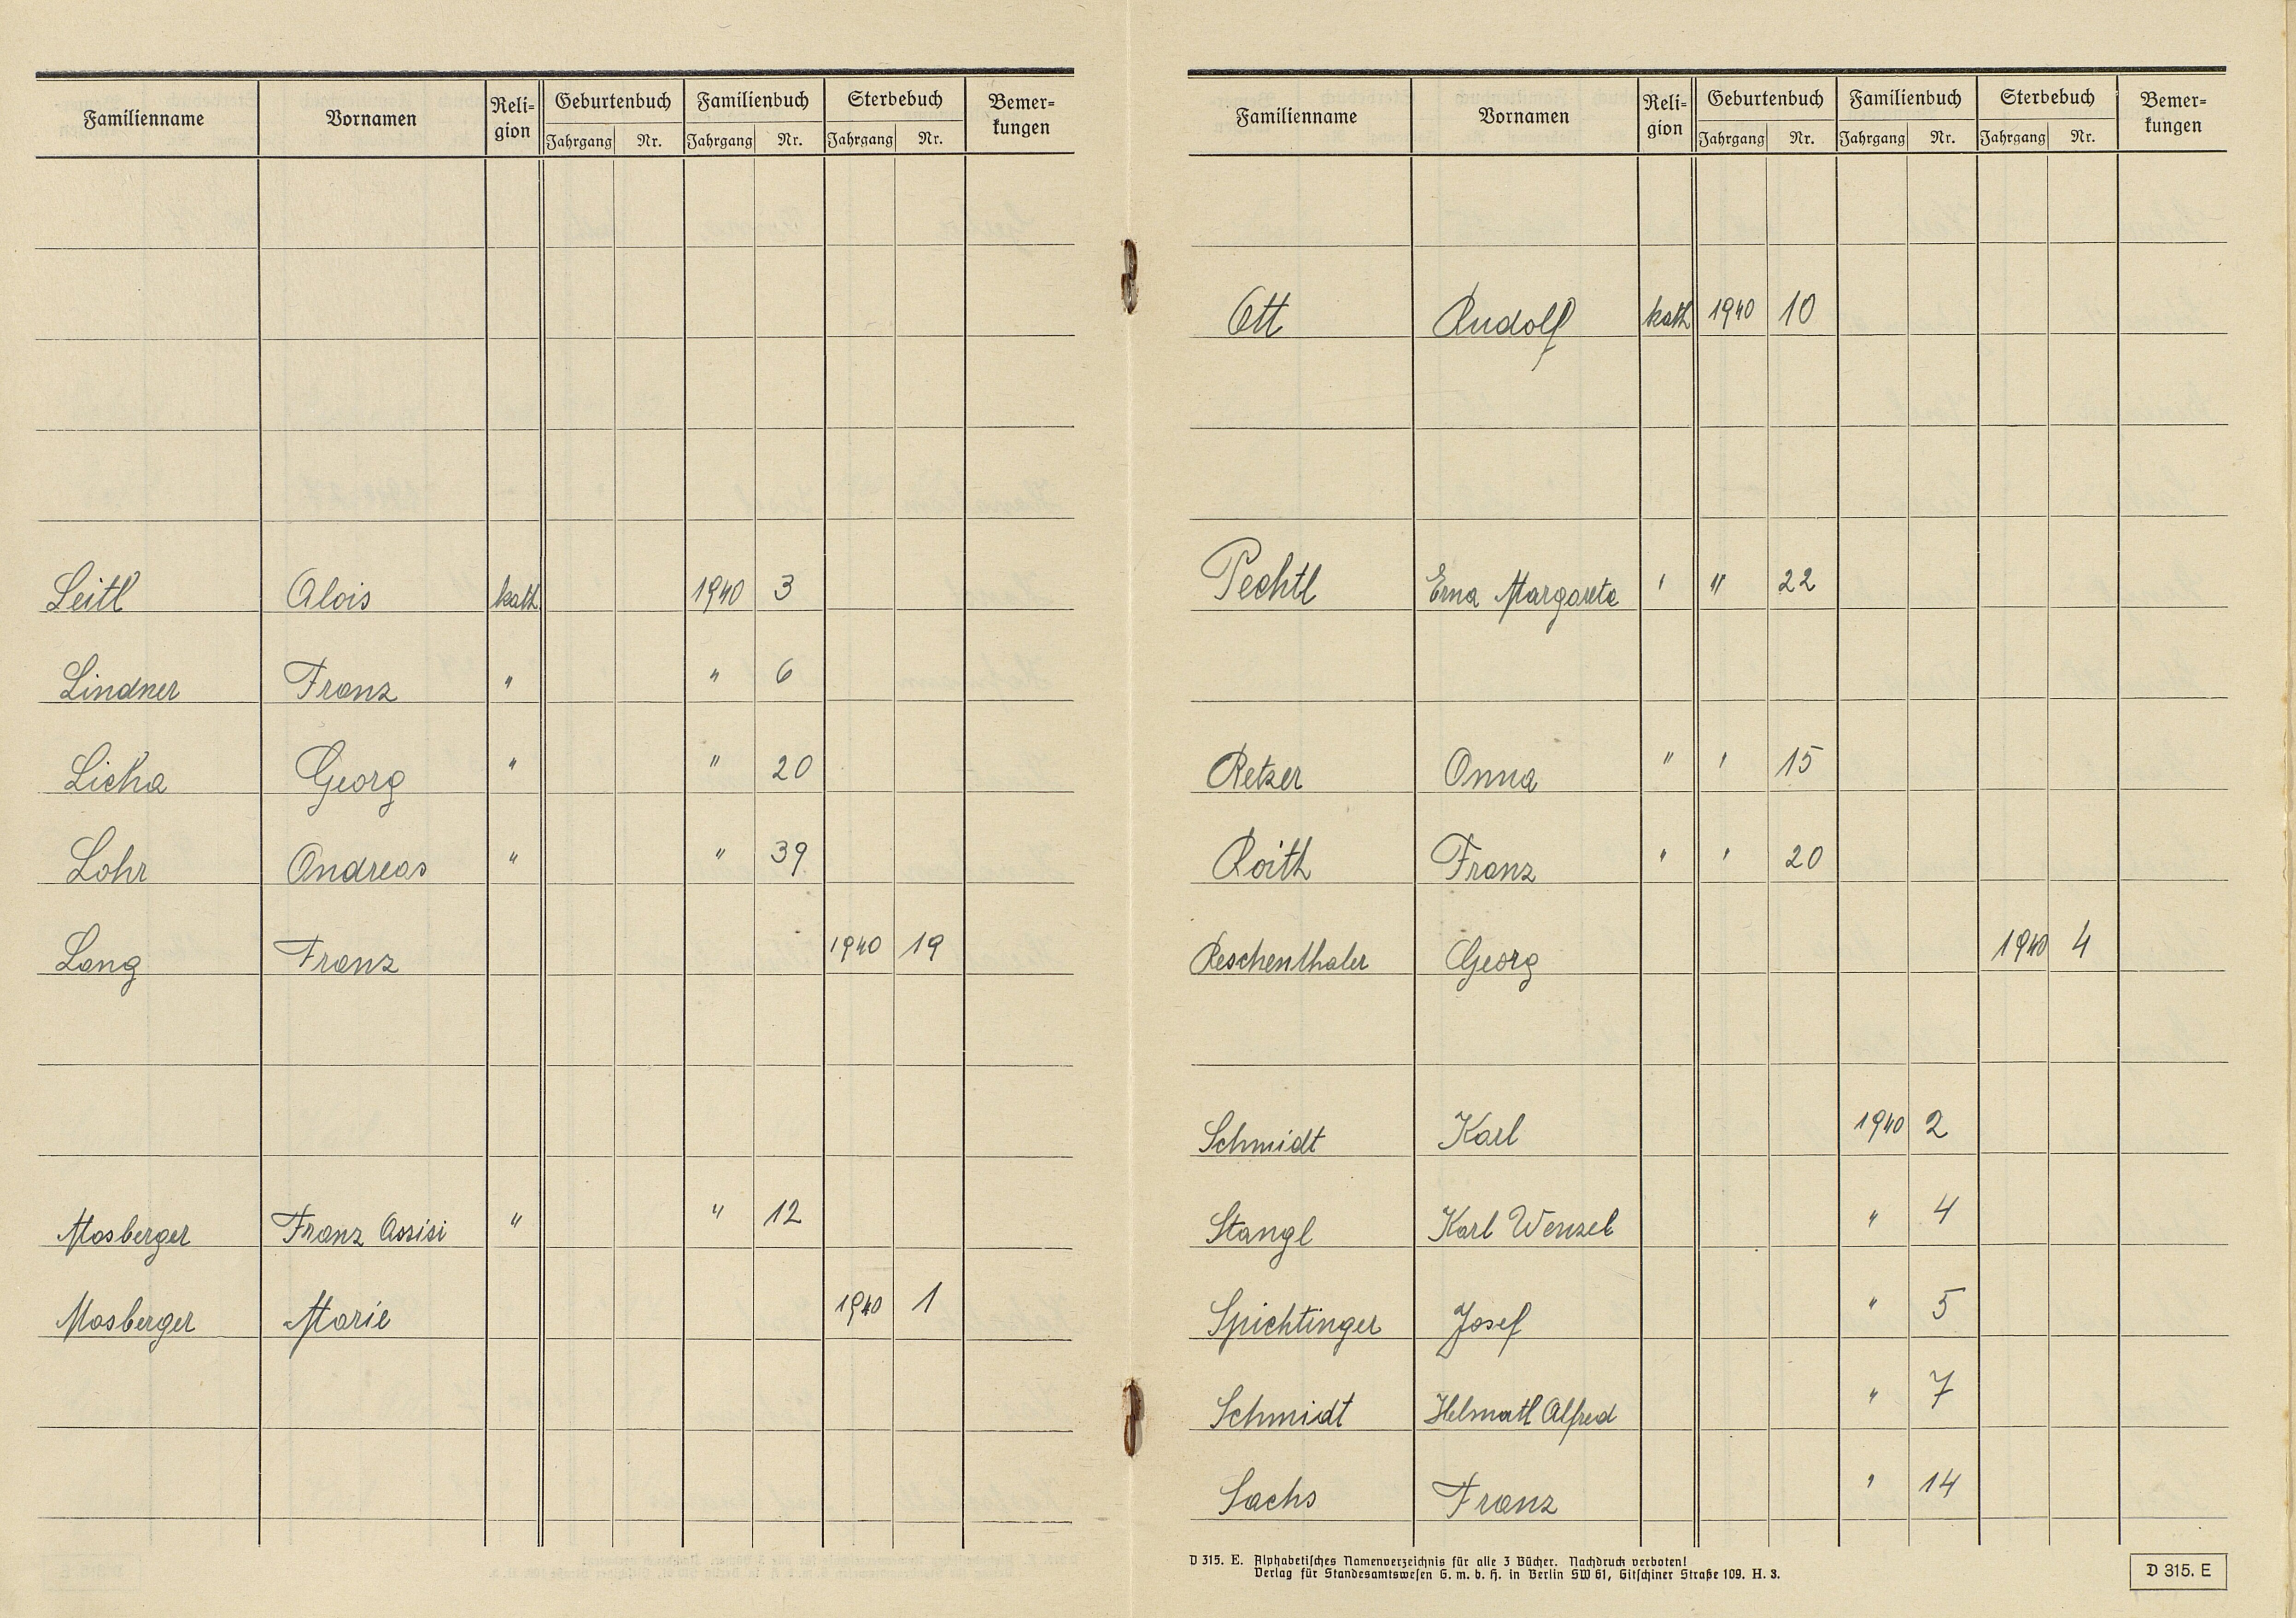 Familienname Vornamen Reli- gion Geburtenbuch Familienbuch Sterbebuch Bemer- kungen
Jahrgang Nr. Jahrgang Nr. Jahrgang Nr.
Leitl Alois kath 1940 3
Lindner Franz " " 6
Licha Georg " " 20
Lohr Andreas " " 39
Lang Franz 1940 19
Mosberger Franz Assisi " " 12
Mosberger Marie 1940 1
Familienname Vornamen Reli- gion Geburtenbuch Familienbuch Sterbebuch Bemer- kungen
Jahrgang Nr. Jahrgang Nr. Jahrgang Nr.
Ott Rudolf kath 1940 10
Pechtl Erna Margareta ' " 22
Retzer Anna " ' 15
Roith Franz " ' 20
Reschenthaler Georg 1940 4
Schmidt Karl 1940 2
Stangl Karl Wenzel " 4
Spichtinger Josef " 5
Schmidt Alfred " 7
Sachs Franz ' 14
D 315. E. Alphabetisches Namenverzeichnis für alle 3 Bücher. Nachdruck verboten!
Verlag für Standesamtswesen G. m. b. H. in Berlin SW 61, Gitschiner Straße 109. H. 3.
D 315. E